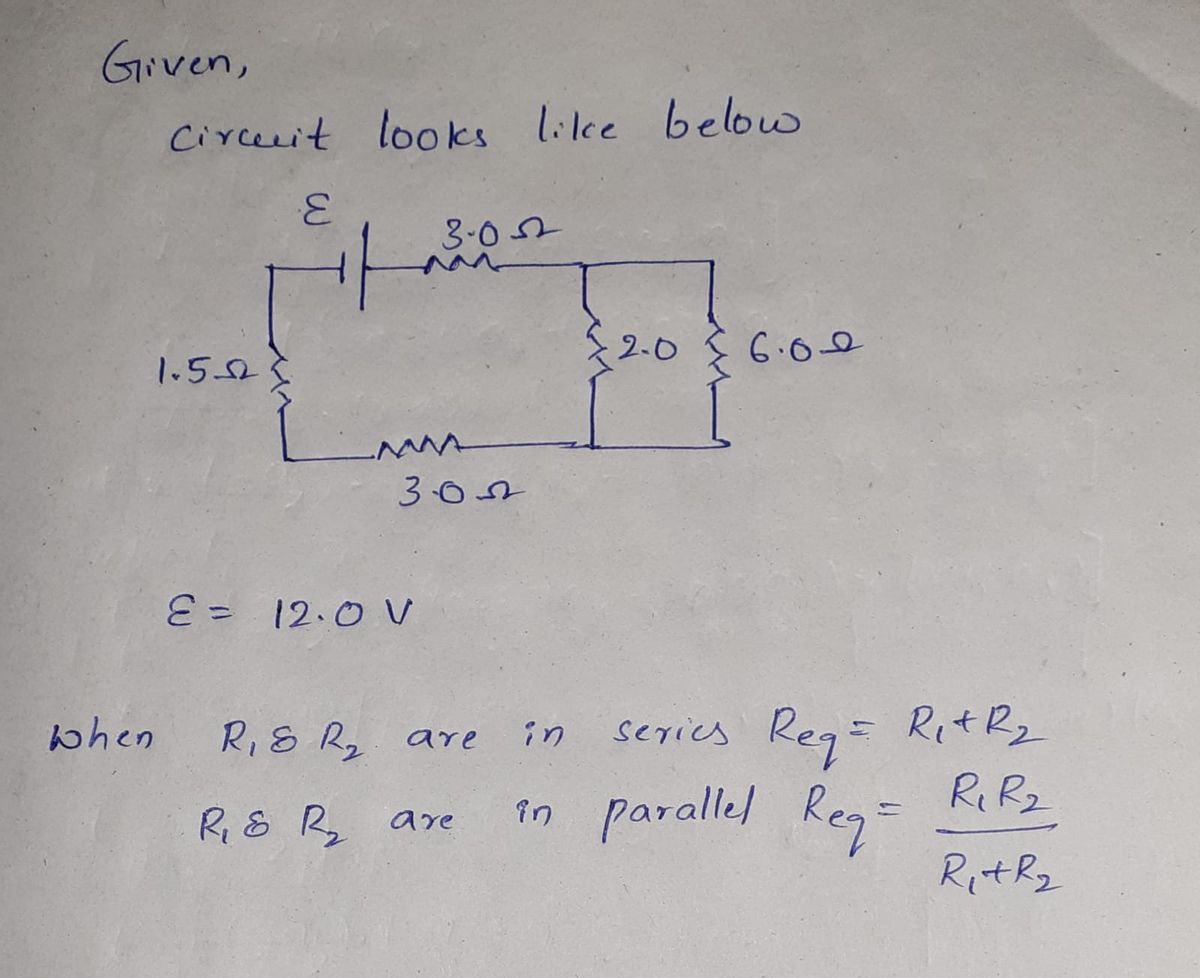 Given,
circuit looks like below
ε
3.0Ω
1.5Ω
2.0
6.0Ω
3.0Ω
ε = 12.0 V
when R₁ & R₂ are in series Req = R₁+R₂
R₁ & R₂ are in parallel Req = R₁R₂
R₁+R₂